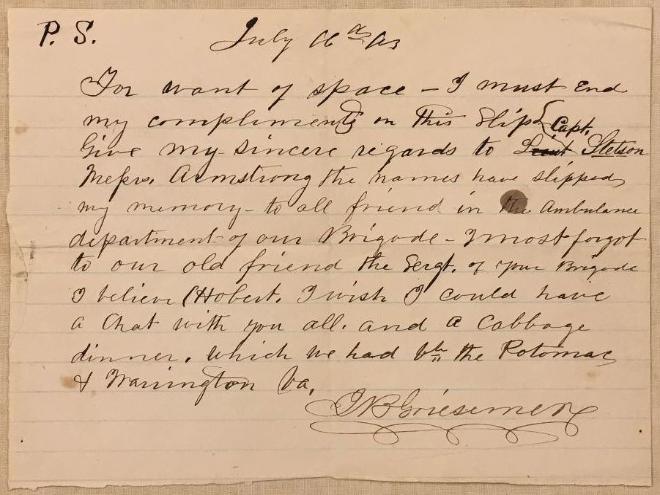 P. S. July 16th 63
For want of space – I must End
my compliments on this Slip
Give my sincere regards to Capt. Stetson
Messrs. Armstrong the names have slipped
my memory – to all friend in the Ambulance
department of our Brigade – I most forgot
to our old friend the Sergt. of your Brigade
I believe (Hobert. I wish I could have
a Chat with you all. and a Cabbage
dinner. which we had btw the Potomac
& Warrington Va.